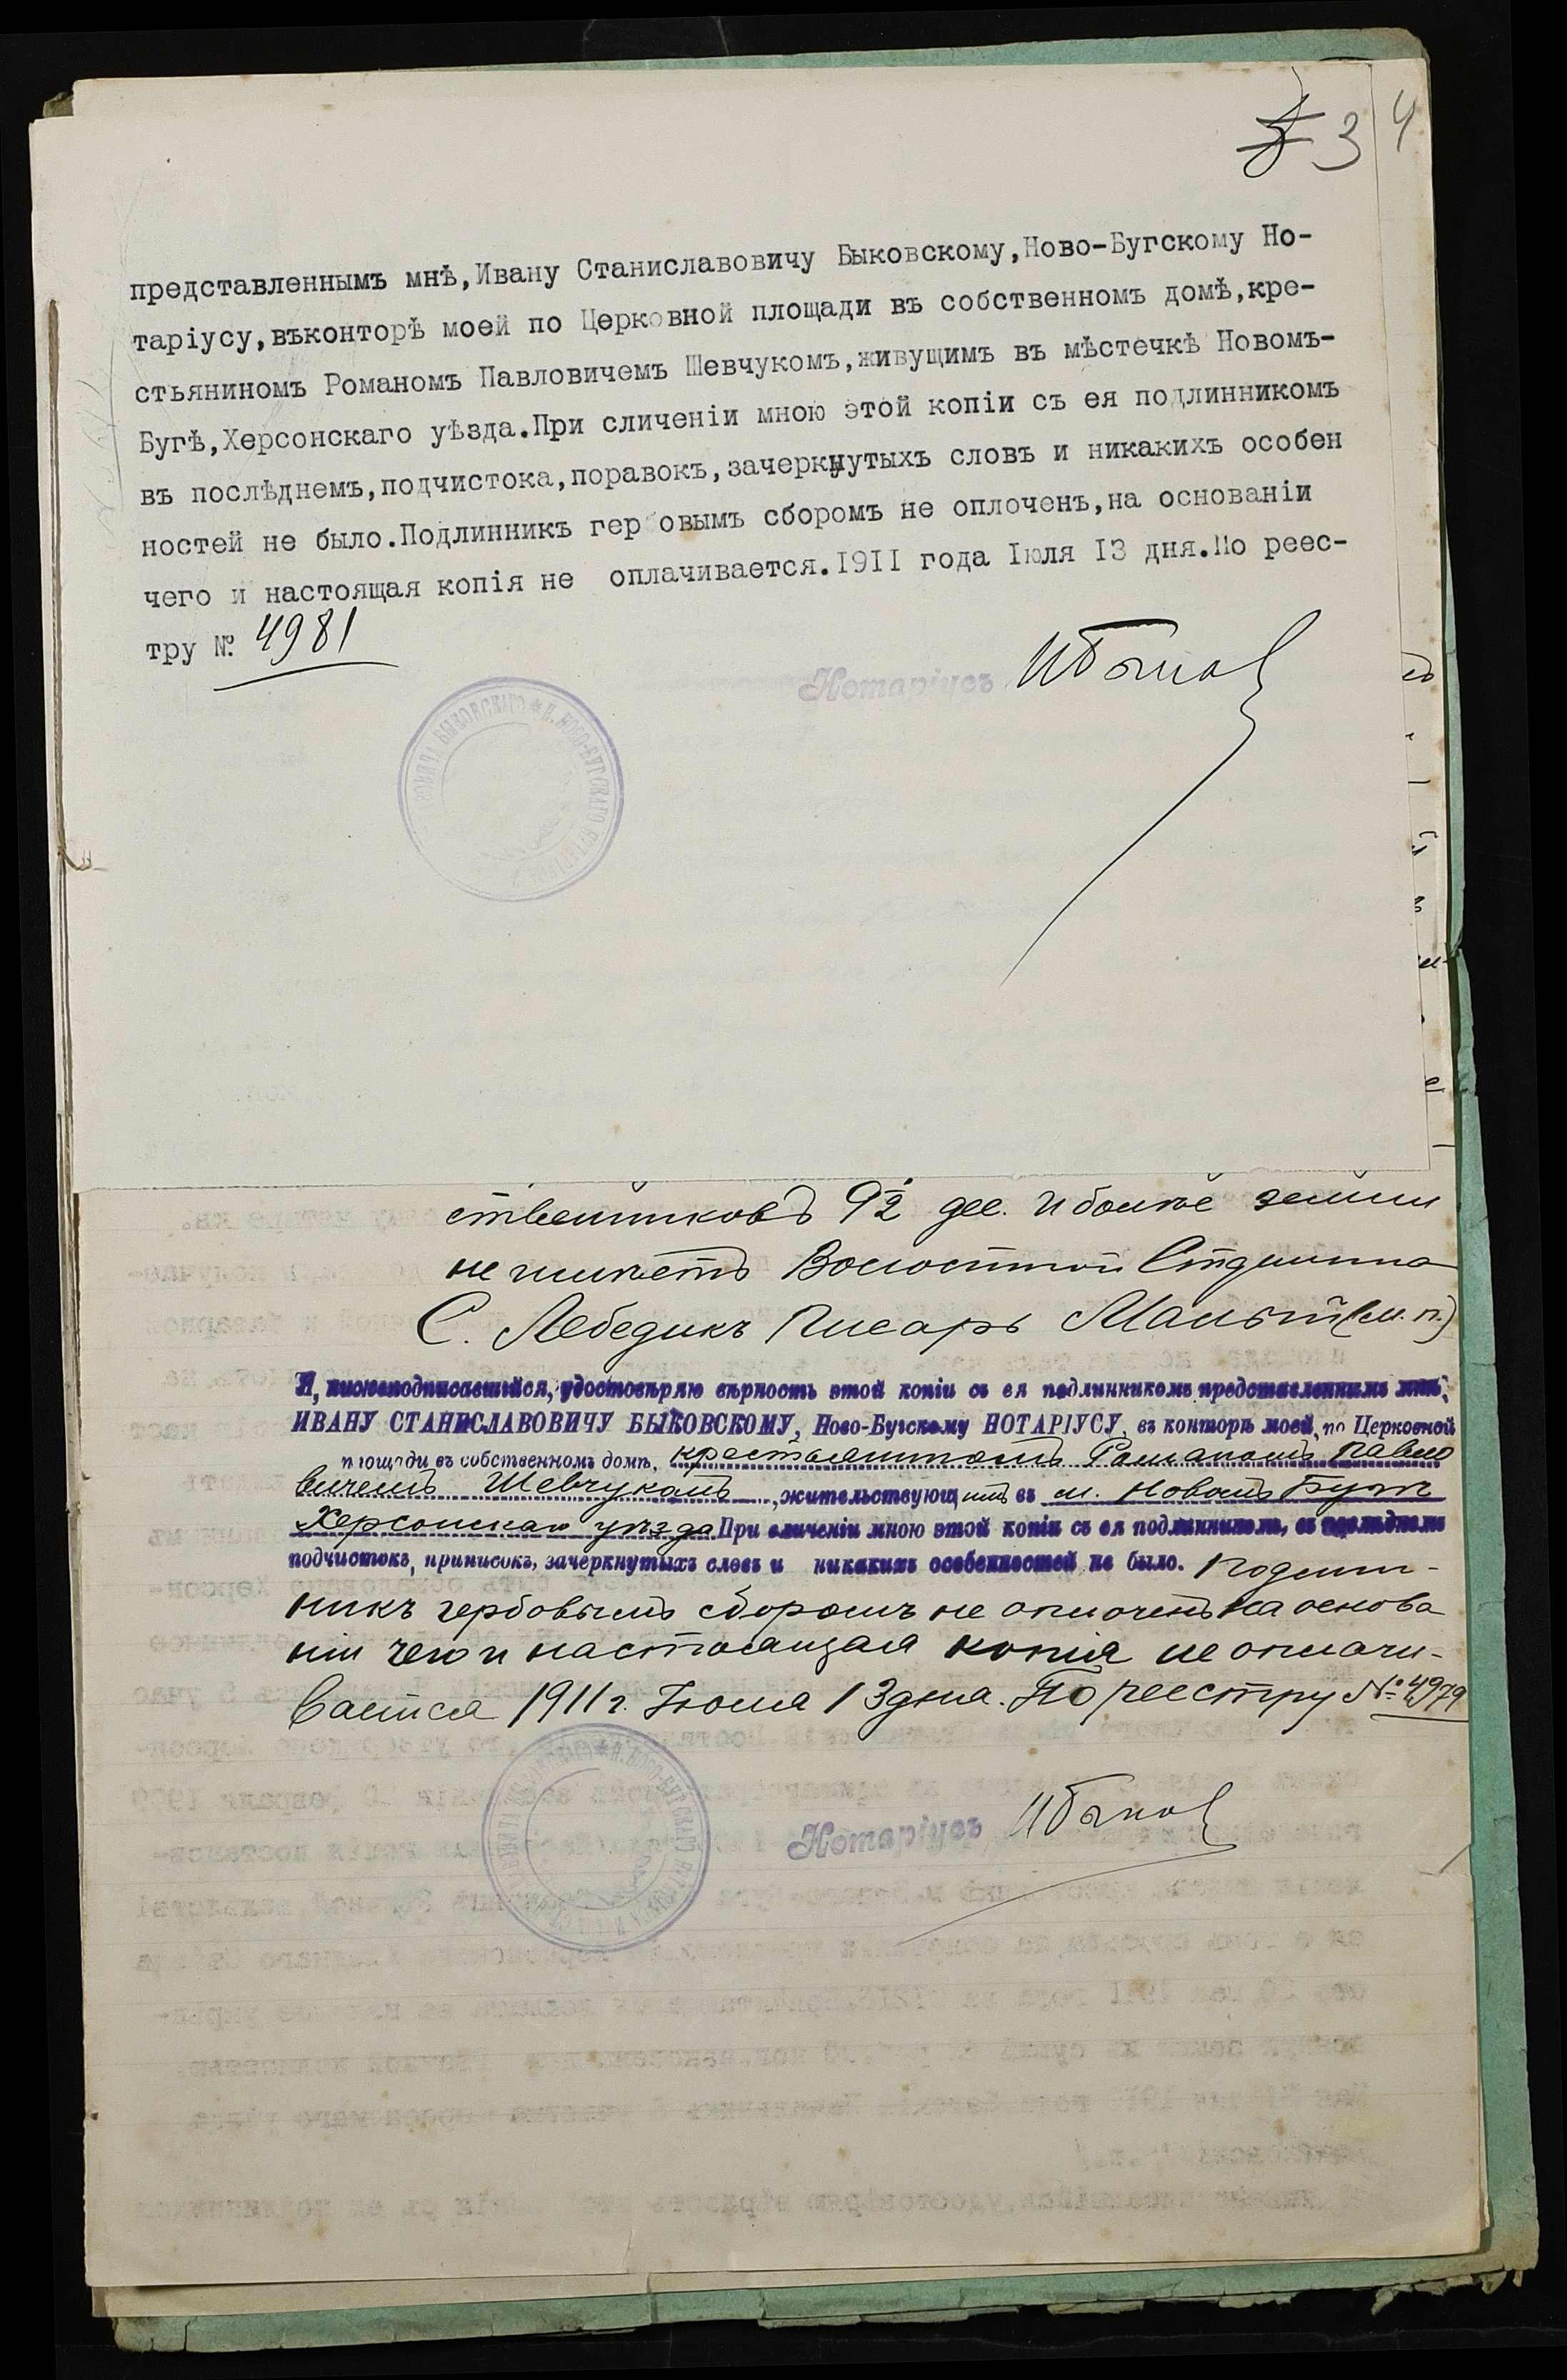 3 4
представленнымъ мнѣ,Ивану Станиславовичу Быковскому,Ново-Бугскому Но-
таріусу,въконторѣ моей по Церковной площади въ собственномъ домѣ,кре-
стьяниномъ Романомъ Павловичемъ Шевчукомъ,живущимъ въ мѣстечкѣ Новомъ-
Бугѣ,Херсонскаго уѣзда.При сличеніи мною этой копіи съ ея подлинникомъ
въ послѣднемъ,подчистока,поравокъ,зачеркнутыхъ словъ и никакихъ особен
ностей не было.Подлинникъ гербовымъ сборомъ не оплоченъ,на основаніи
чего и настоящая копія не оплачивается.1911 года Іюля 13 дня.По реес-
тру №. 4981
Нотаріусъ
ственниковъ 9½ дес. и болѣе земли
не имѣетъ Волостной Старшина
С. Лебедикъ Писарь (м.п.)
Я, нижеподписавшійся, удостовѣряю вѣрность этой копіи съ ея подлинникомъ представленнымъ мнѣ,
ИВАНУ СТАНИСЛАВОВИЧУ БЫКОВСКОМУ, Ново-Бугскому НОТАРІУСУ, въ конторѣ моей, по Церковной
площади въ собственномъ домѣ, крестьяниномъ Романомъ Павло
вичемъ Шевчукомъ, жительствующимъ въ м. Новомъ Бугѣ
Херсонскаго уѣзда При сличеніи мною этой копіи съ ея подлинникомъ, въ послѣднемъ
подчистокъ, приписокъ, зачеркнутыхъ словъ и никакихъ особенностей не было. Подлин-
никъ гербовымъ сборомъ не оплоченъ на основа
ніи чего и настоящая копія не оплачи-
вается 1911 г. Іюля 13 дня. По реестру № 4979
Нотаріусъ